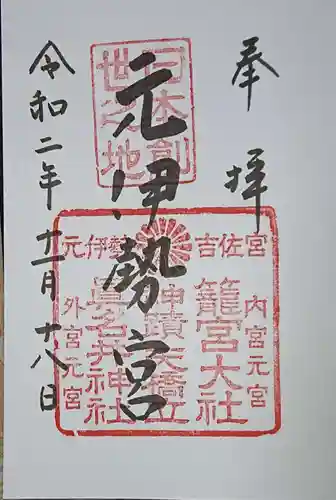 奉拝
日本創
世之地
元伊勢宮
元伊勢 吉佐宮
内宮元宮
籠宮大社
神蹟天橋立
眞名井神社
外宮元宮
令和二年十一月十八日